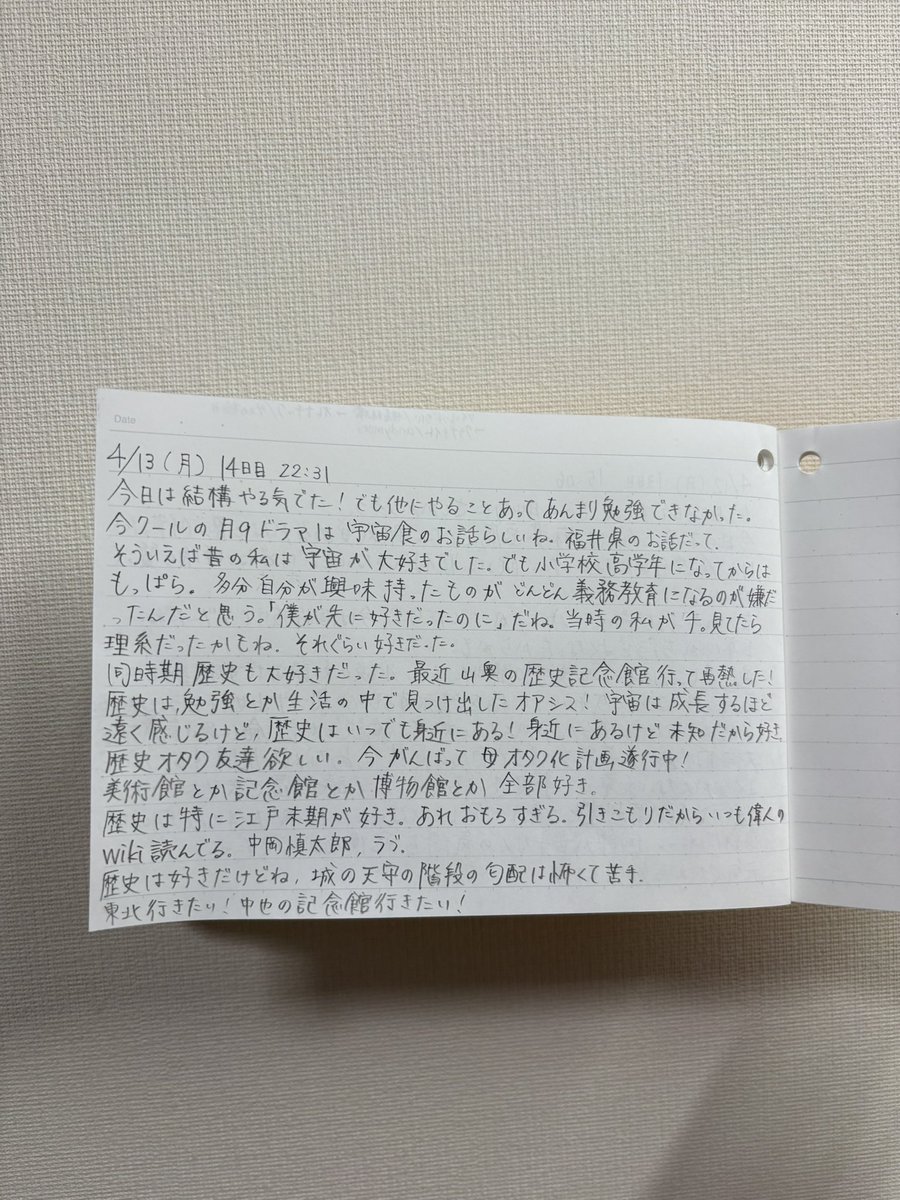 Date
4/13(月) 14日目 22:31
今日は結構やる気でた!でも他にやることあってあんまり勉強できなかった。
今クールの月9ドラマは宇宙食のお話らしいね。福井県のお話だって、
そういえば昔の私は宇宙が大好きでした。でも小学校高学年になってからは
もっぱら。多分自分が興味持ったものがどんどん義務教育になるのが嫌だ
ったんだと思う。「僕が先に好きだったのに」だね。当時の私がチ。見てたら
理系だったかもね、それぐらい好きだった。
同時期歴史も大好きだった。最近山奥の歴史記念館行って再熱した!
歴史は、勉強とか生活の中で見つけ出したオアシス!宇宙は成長するほど
遠く感じるけど、歴史はいつでも身近にある!身近にあるけど未知だから好き。
歴史オタク友達欲しい。今がんばって母オタク化計画遂行中!
美術館とか記念館とか博物館とか全部好き。
歴史は特に江戸末期が好き。あれおもろすぎる。引きこもりだからいつも偉人の
wiki読んでる。中岡慎太郎、ラブ。
歴史は好きだけどね、城の天守の階段の勾配は怖くて苦手、
東北行きたい!中也の記念館行きたい!